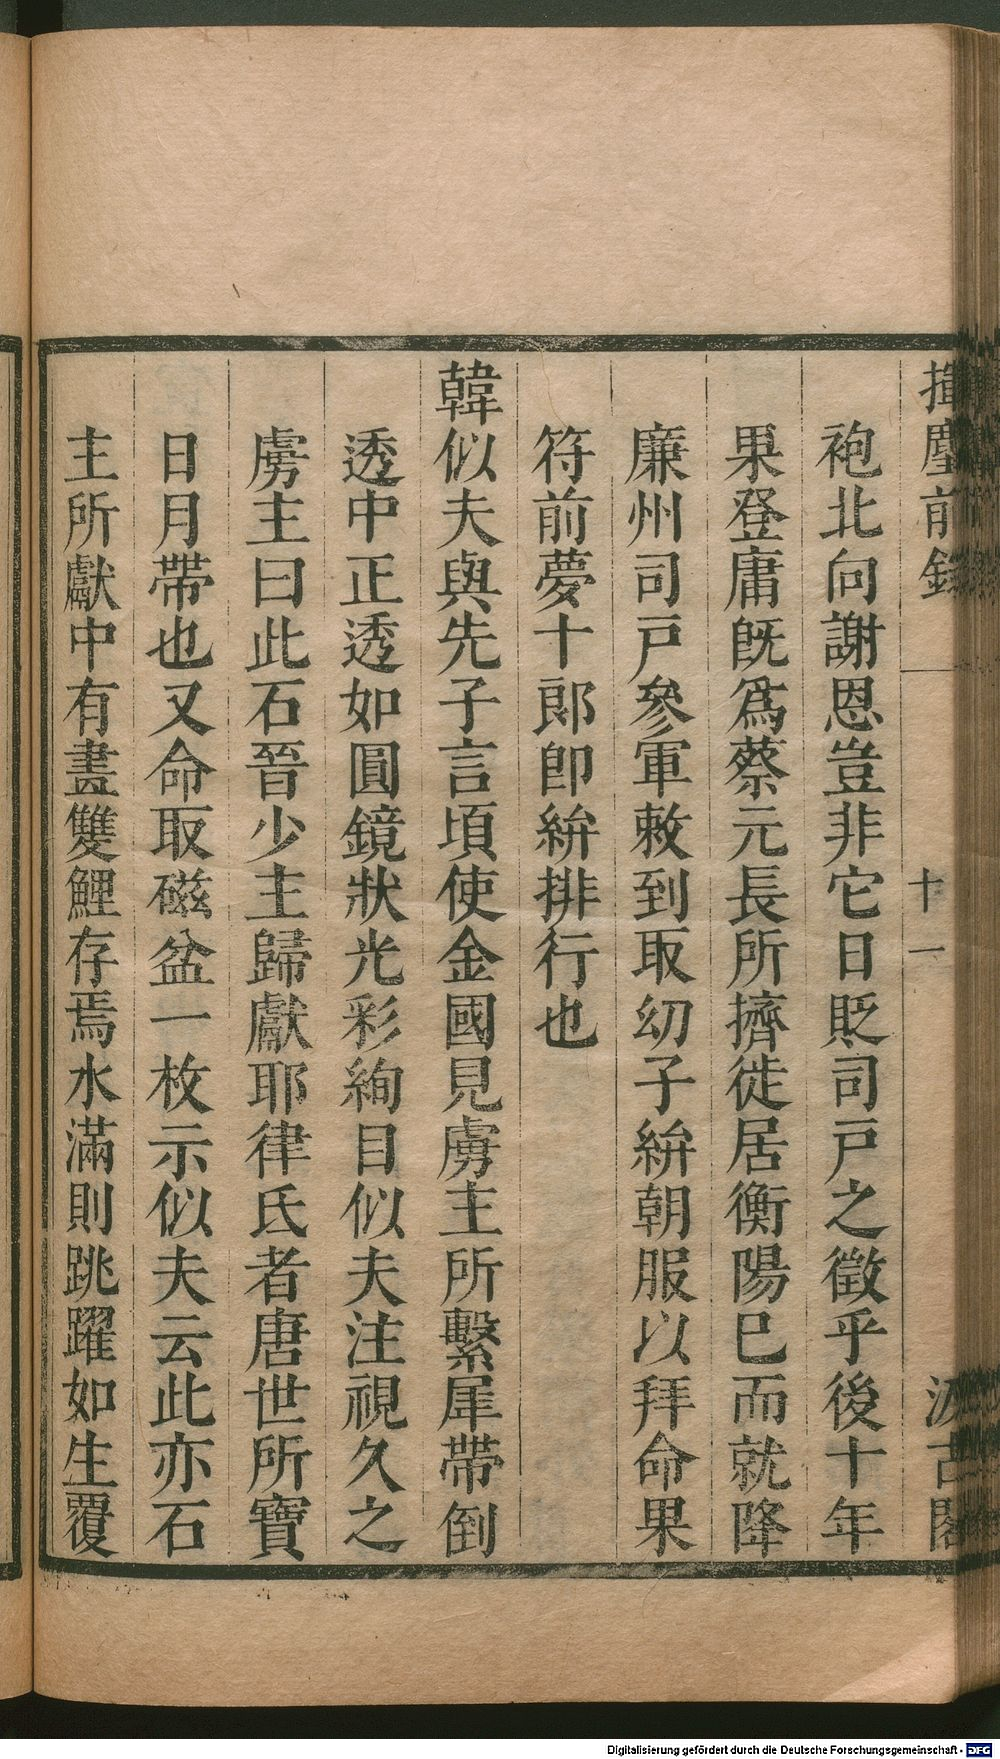 揮麈前錄 十一 汲古閣
袍北向謝恩豈非它日貶司戸之徵乎後十年
果登庸旣爲蔡元長所擠徙居衡陽巳而就降
廉州司戸參軍敕到取幼子絣朝服以拜命果
符前夢十郞卽絣排行也
韓似夫與先子言頃使金國見虜主所繫犀帶倒
透中正透如圓鏡狀光彩絢目似夫注視久之
虜主曰此石晉少主歸獻耶律氏者唐世所寶
日月帶也又命取磁盆一枚示似夫云此亦石
主所獻中有畫雙鯉存焉水滿則跳躍如生覆
Digitalisierung gefördert durch die Deutsche Forschungsgemeinschaft - DFG